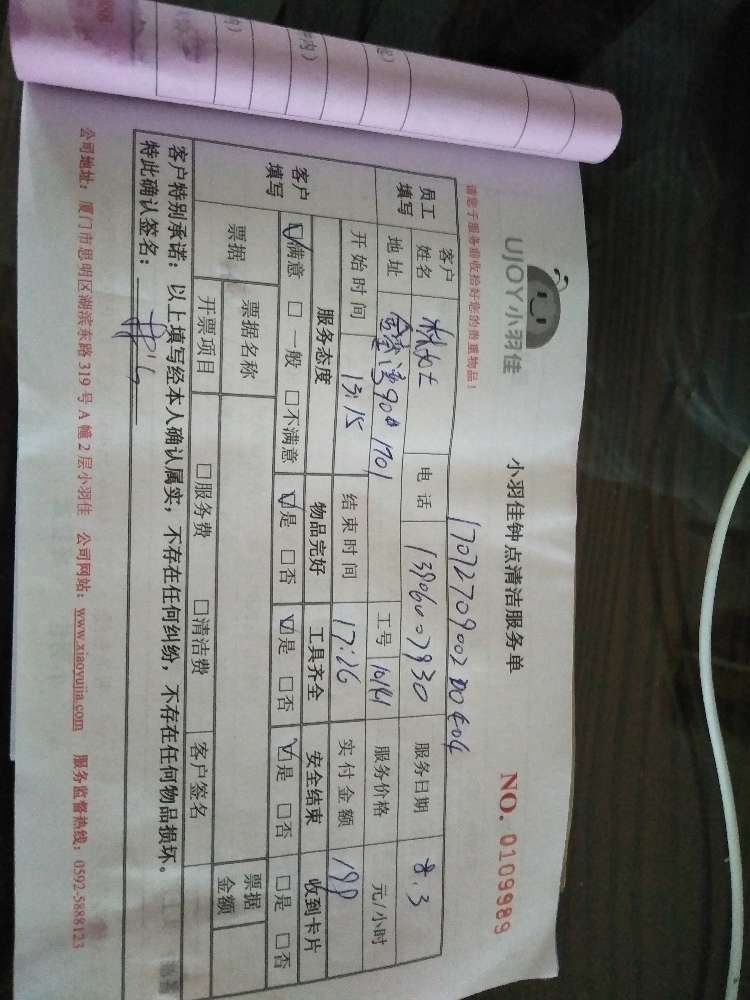 UJOY小羽佳
小羽佳钟点清洁服务单
NO. 0109989
请您于服务前收拾好您的贵重物品！
员工填写
客户姓名
电话 13906007930
服务日期 8.3
地址
工号
服务价格 元/小时
开始时间 13:15
结束时间 17:26
实付金额 198
客户填写
服务态度 物品完好 工具齐全 安全结束 收到卡片
满意 一般 不满意 是 否 是 否 是 否 是 否
票据 票据名称 票据金额
开票项目 服务费 清洁费 客户签名
客户特别承诺：以上填写经本人确认属实，不存在任何纠纷，不存在任何物品损坏。
特此确认签名：
公司地址：厦门市思明区湖滨东路319号A幢2层小羽佳 公司网站：www.xiaoyujia.com 服务监督热线：0592-5888123